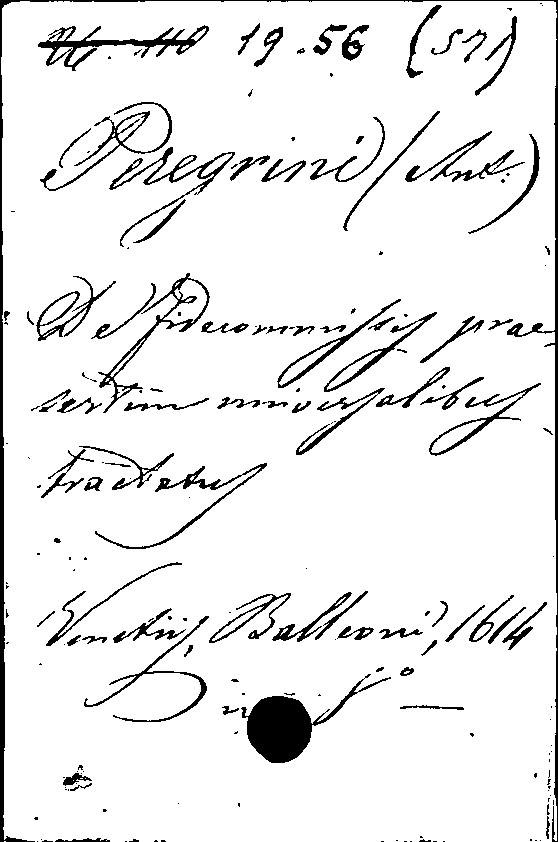 19.56 (571)
Peregrini (Ant.)
De Fidecommissis prae-
sertim universalibus
tractatus
Venetiis, Balleoni, 1614